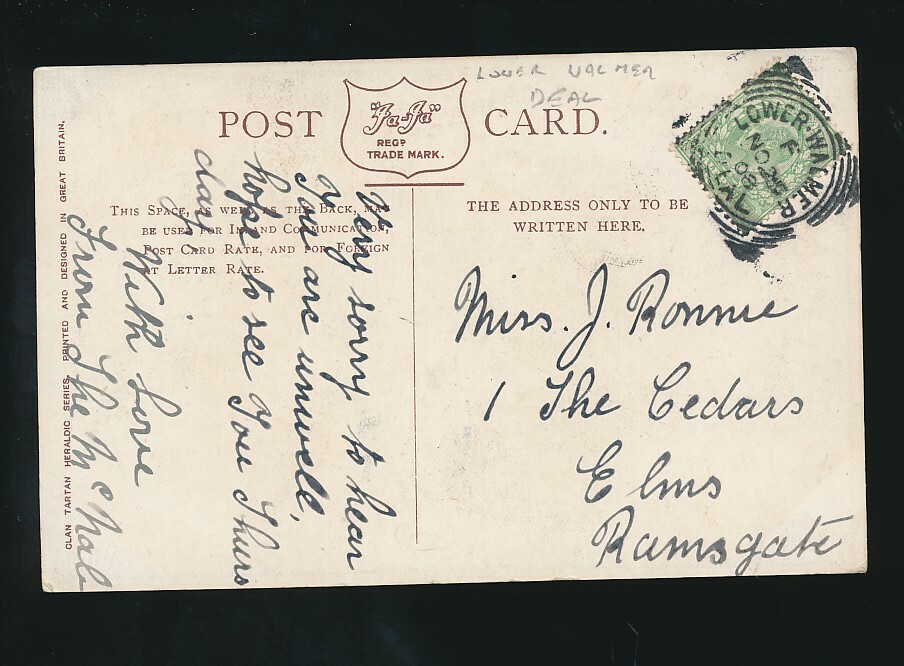 LOWER WALMER
DEAL
POST CARD.
"Ja-Ja"
REGD
TRADE MARK.
THIS SPACE, AS WELL AS THE BACK, MAY
BE USED FOR INLAND COMMUNICATION,
POST CARD RATE, AND FOR FOREIGN
AT LETTER RATE.
THE ADDRESS ONLY TO BE
WRITTEN HERE.
CLAN TARTAN HERALDIC SERIES. PRINTED AND DESIGNED IN GREAT BRITAIN.
LOWER·WALMER
F
NO 25
08
DEAL
Very sorry to hear
You are unwell,
hope to see You Thurs
day.
With Love
From The McNab
Miss. J. Ronnie
1 The Cedars
Elms
Ramsgate